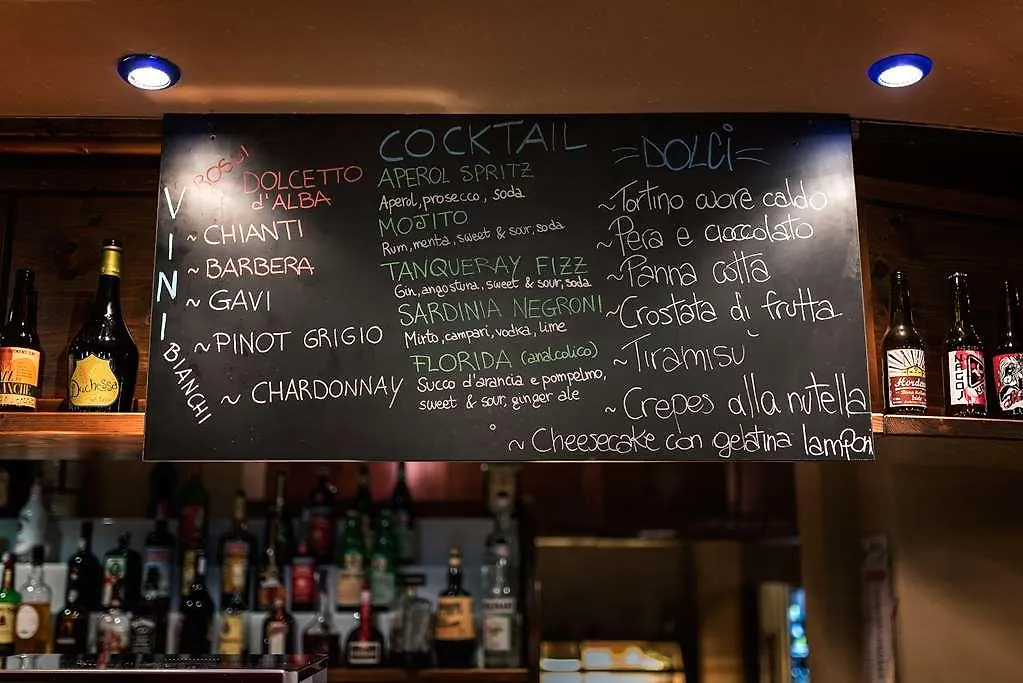 VINI
ROSSI
DOLCETTO
d'ALBA
~ CHIANTI
~ BARBERA
~ GAVI
~ PINOT GRIGIO
BIANCHI
~ CHARDONNAY
COCKTAIL
APEROL SPRITZ
Aperol, prosecco, soda
MOJITO
Rum, menta, sweet & sour, soda
TANQUERAY FIZZ
Gin, angostura, sweet & sour, soda
SARDINIA NEGRONI
Mirto, campari, vodka, lime
FLORIDA (analcolico)
Succo d'arancia e pompelmo,
sweet & sour, ginger ale
=DOLCI=
~Tortino cuore caldo
~Pera e cioccolato
~Panna cotta
~Crostata di frutta
~Tiramisù
~Crepes alla nutella
~ Cheesecake con gelatina lamponi
Duchessa